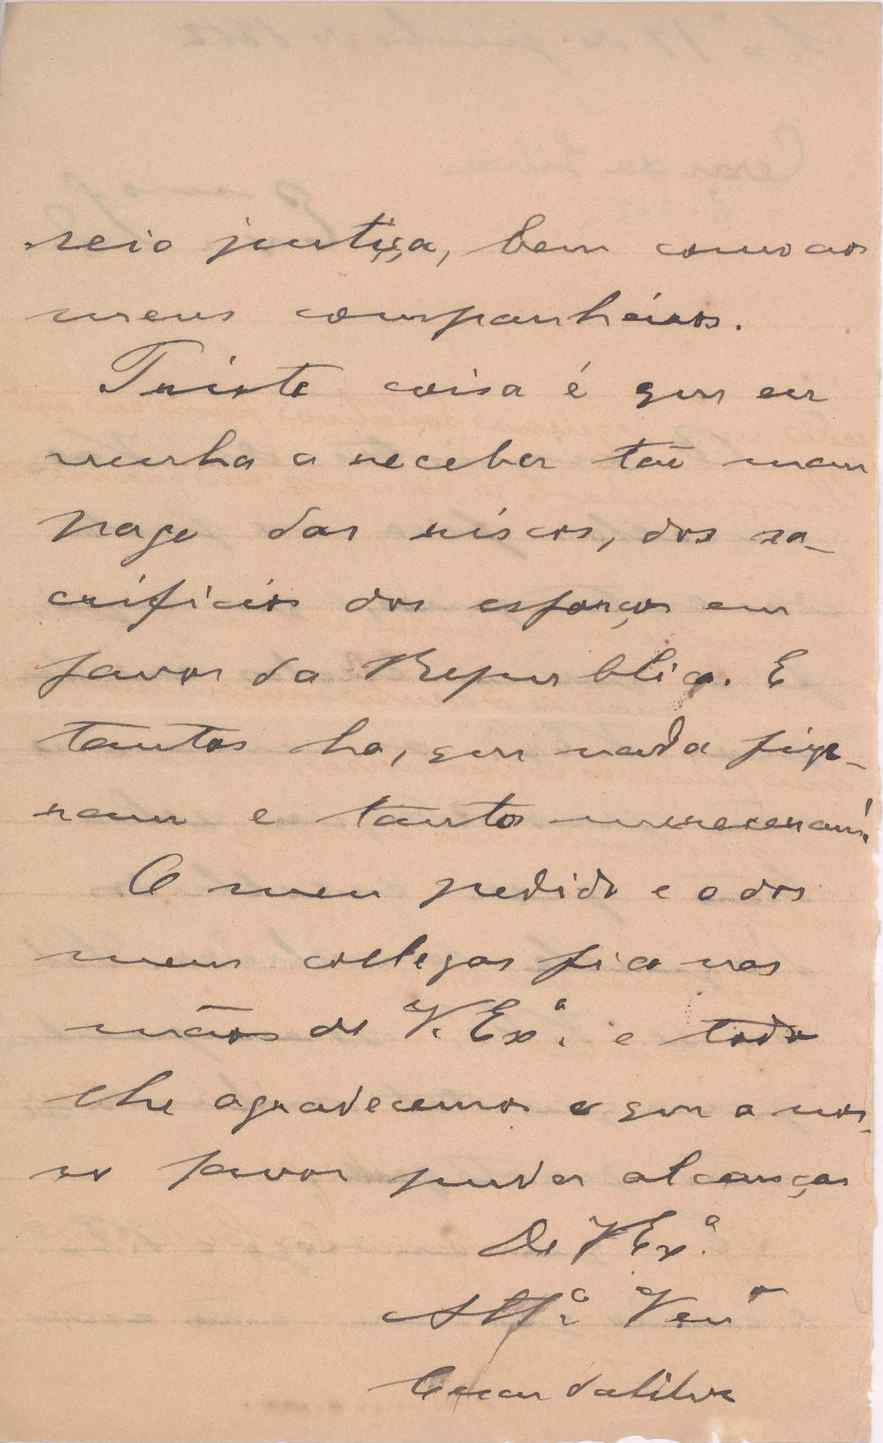 seio justiça, bem como aos
meus companheiros.
Triste coisa é que eu
venha a receber tão mau
pago dos riscos, dos sa-
crificios dos esforços em
favor da Republica. E
tantos ha, que nada fize-
ram e tanto mereceram!
O meu pedido e o dos
meus collegas fica nas
mãos de V. Exª. e todo
lhe agradecemos o que a nos-
so favor puder alcançar
De V Exª.
Attº. Venor
Cesar da Silva